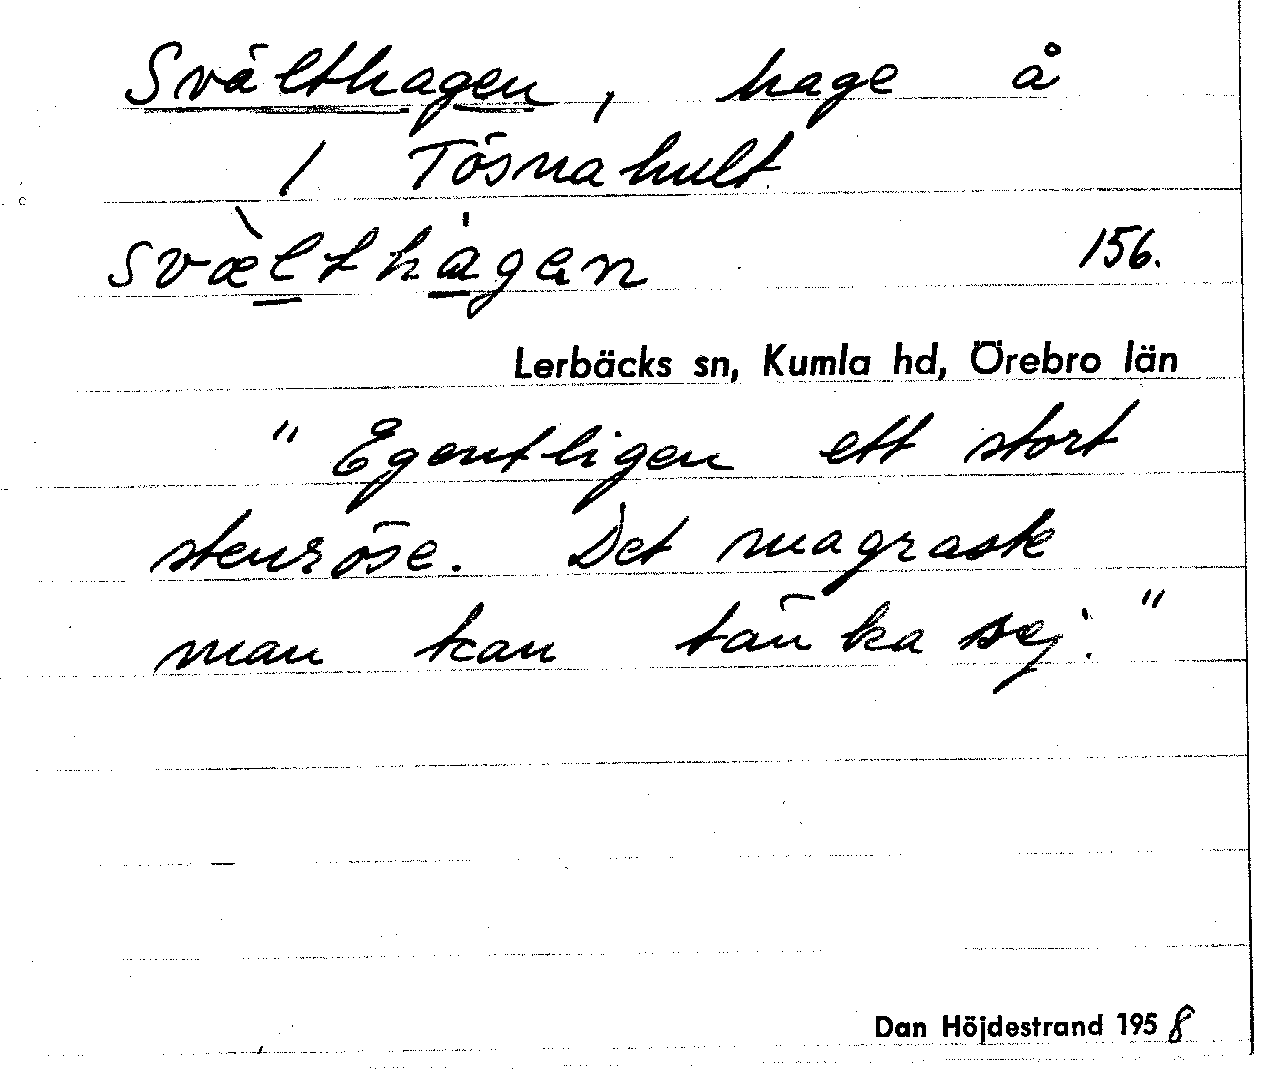 Svälthagen, hage å
1 Tösnahult
svæ̀lthа̍gan 156.
Lerbäcks sn, Kumla hd, Örebro län
" Egentligen ett stort
stenröse. Det magraste
man kan tänka sej."
Dan Höjdestrand 1958